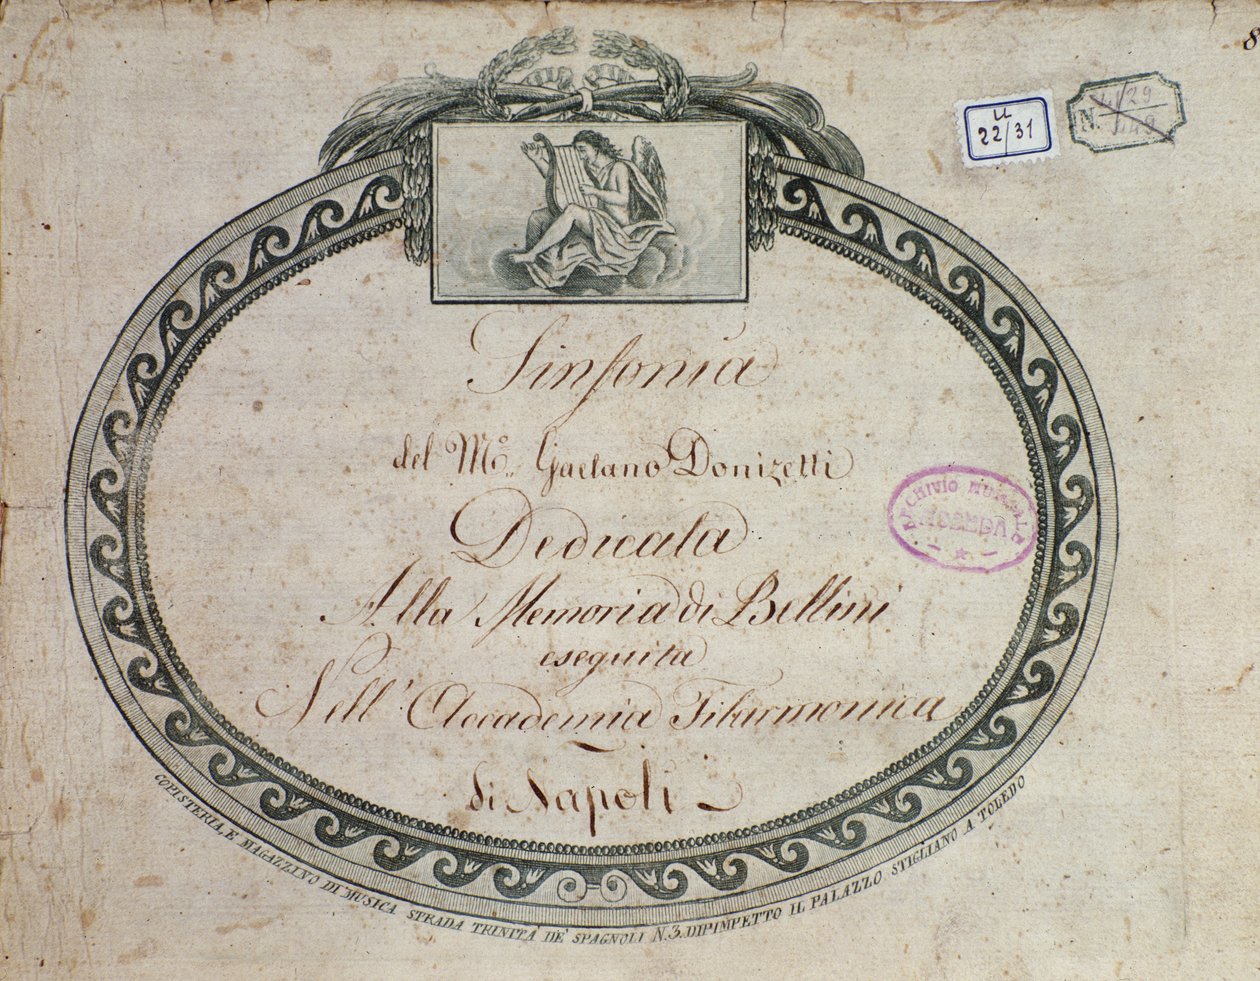 8
U
22/31
N. 4129
449
Sinfonia
del M.º Gaetano Donizetti
Dedicata
Alla Memoria di Bellini
eseguita
Nell' Accademia Filarmonica
di Napoli
ARCHIVIO MUSICALE
NOSEDA
COPISTERIA, E MAGAZZINO DI MUSICA STRADA TRINITA DE' SPAGNOLI N. 3. DIPIMPETTO IL PALAZZO STIGLIANO A TOLEDO